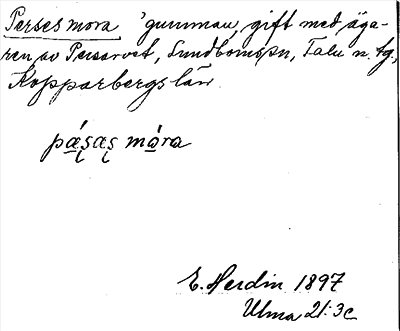 Perses mora 'gumman, gift med äga-
ren av Persarvet, Sundbornssn, Falu n. tg.,
Kopparbergs län.
pǽ̣sæs mó̱ra
E. Herdin 1897
Ulma 21:3c